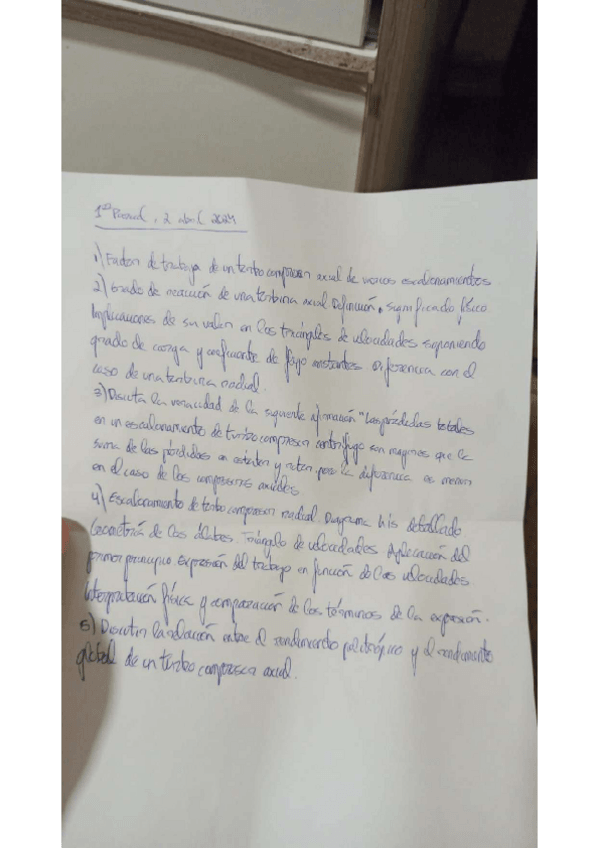 1er Parcial, 2 abril 2024
1) Factor de trabajo de un turbocompresor axial de varios escalonamientos
2) Grado de reacción de una turbina axial Definición, significado físico
Implicaciones de su valor en los triángulos de velocidades suponiendo
grado de carga y coeficiente de flujo constantes Diferencia con el
caso de una turbina radial.
3) Discuta la veracidad de la siguiente afirmación "Las pérdidas totales
en un escalonamiento de turbocompresor centrífugo son mayores que la
suma de las pérdidas en estator y rotor, pero la diferencia es menor
en el caso de los compresores axiales
4) Escalonamiento de turbocompresor radial. Diagrama h-s detallado
Geometría de los álabes. Triángulo de velocidades Aplicación del
primer principio Expresión del trabajo en función de las velocidades
Interpretación física y comparación de los términos de la expresión.
5) Discutir la relación entre el rendimiento politrópico y el rendimiento
global de un turbocompresor axial.